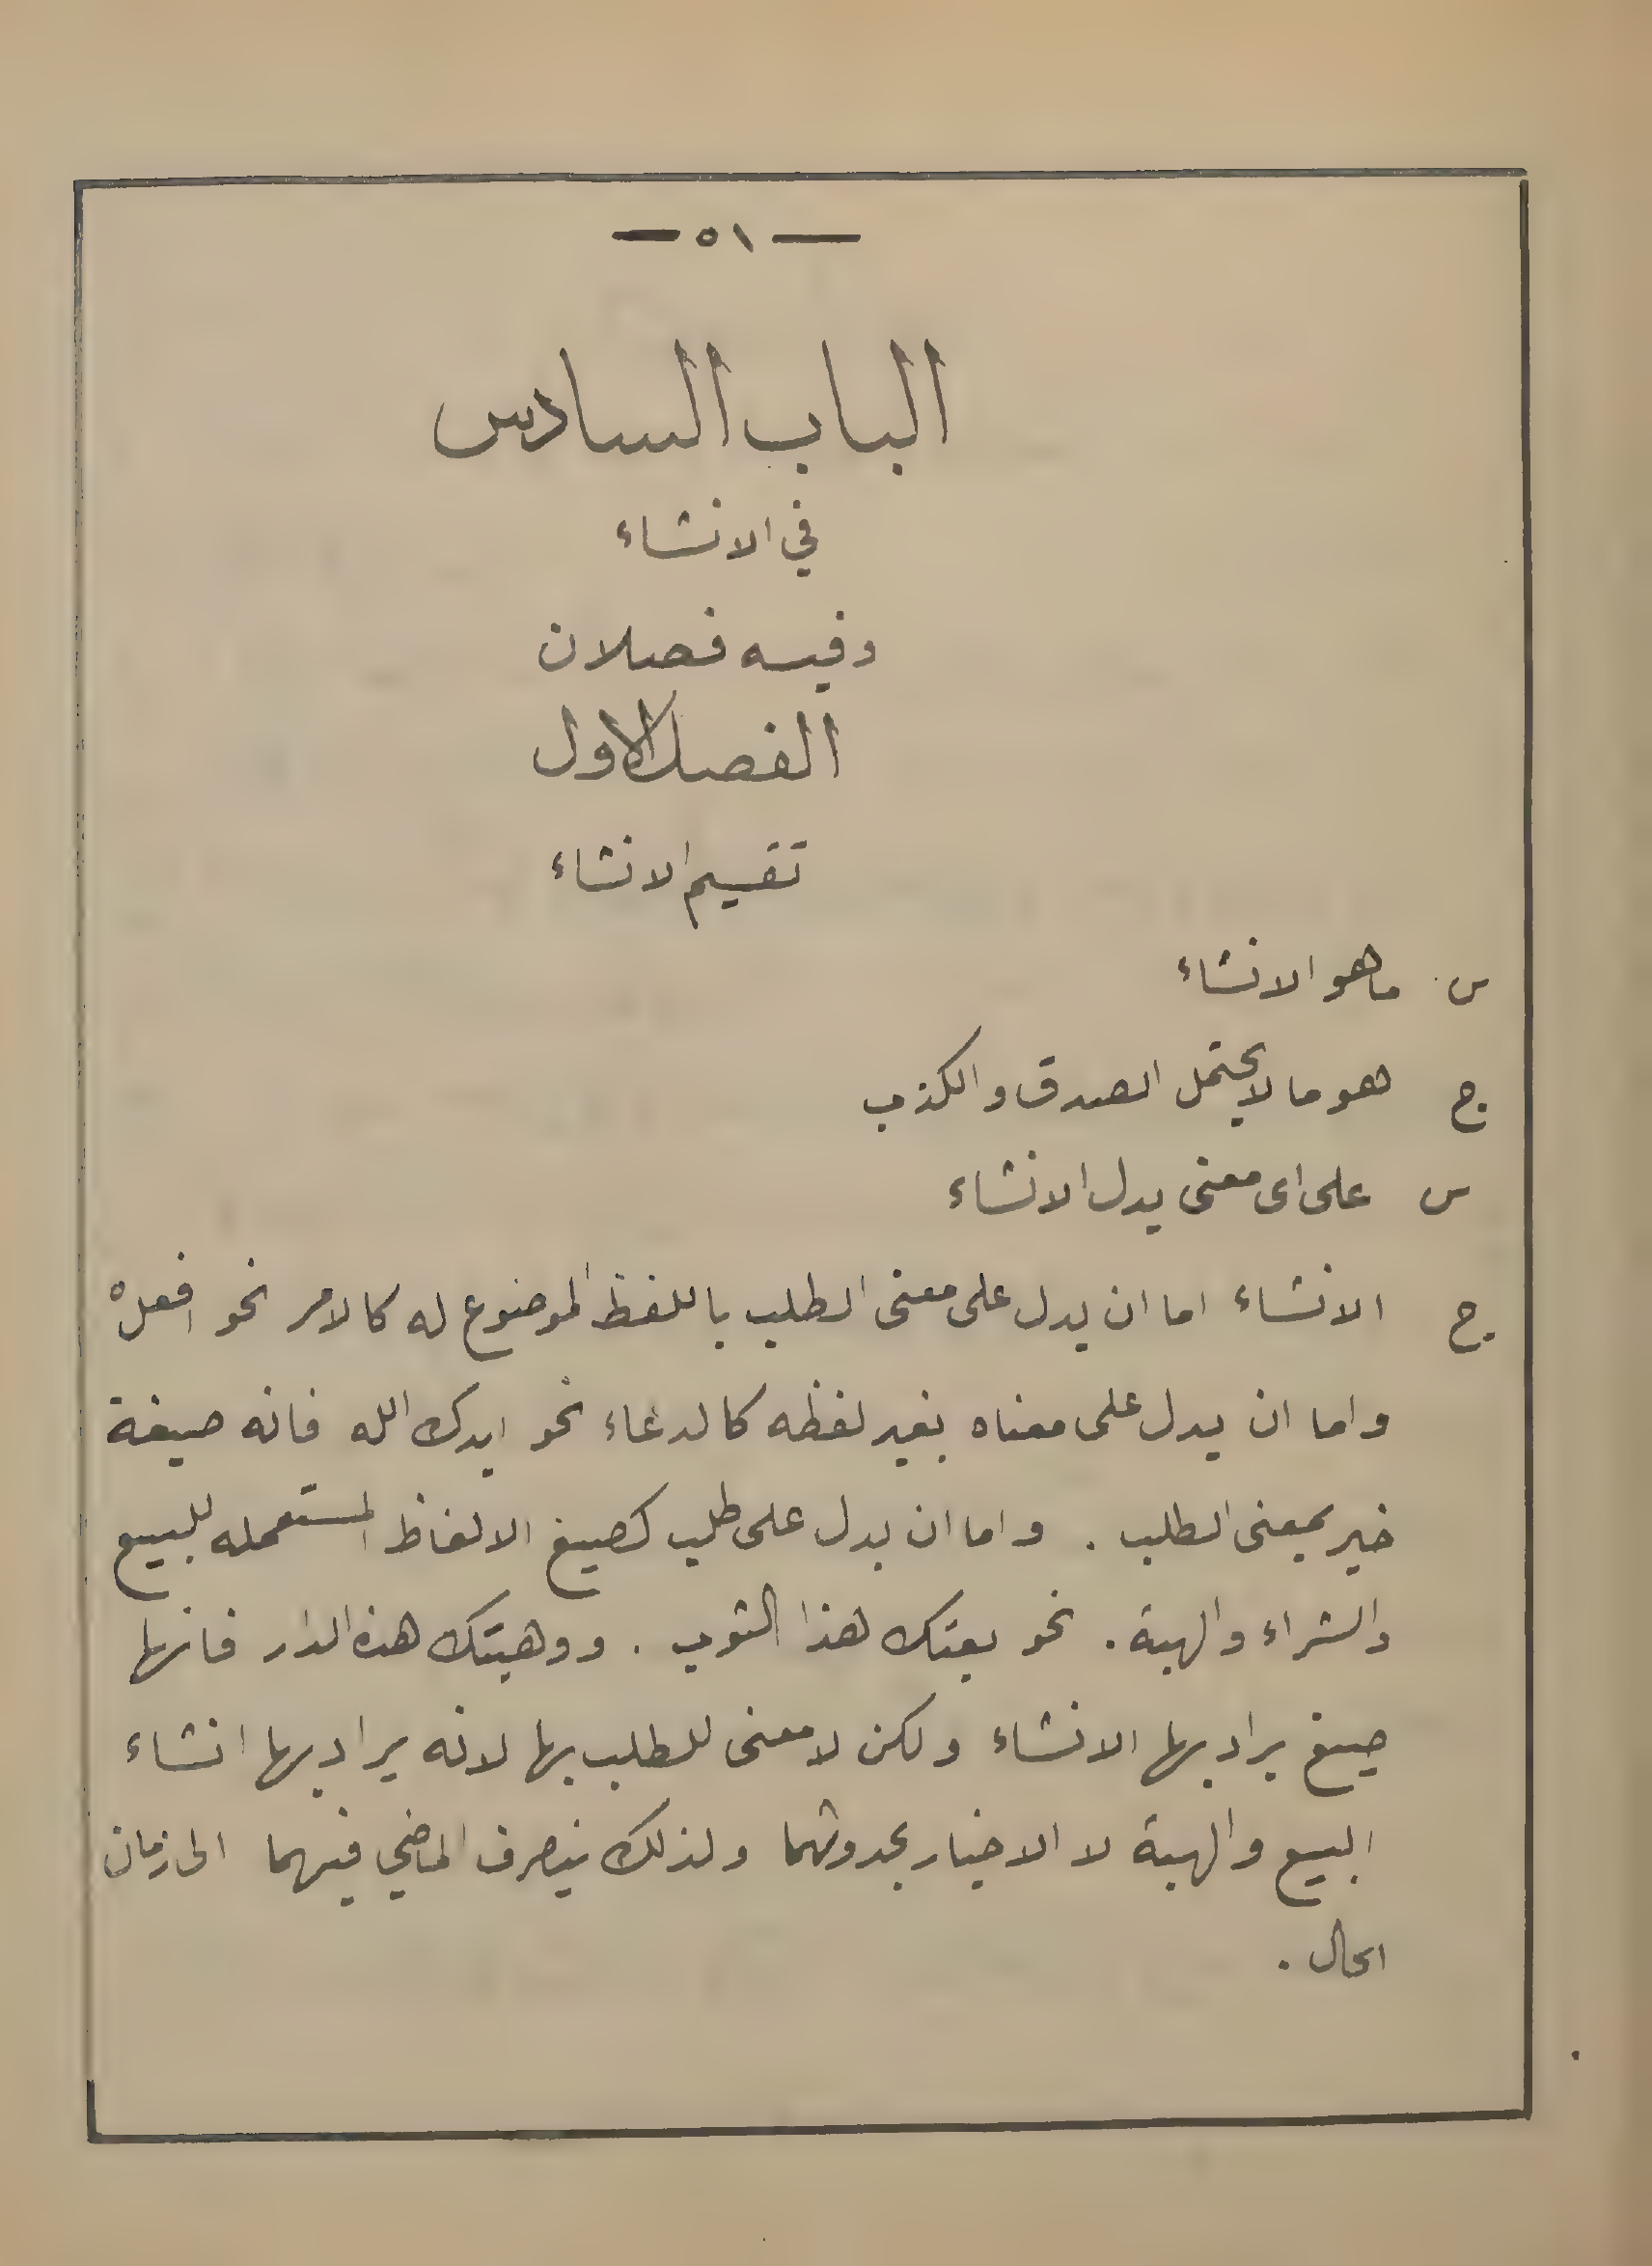 — ٥١ —
الباب السادس
في الانشاء
وفيه فصلان
الفصل الاول
تقسيم الانشاء
س ما هو الانشاء
ج هو ما لا يحتمل الصدق والكذب
س على اى معنى يدل الانشاء
ج الانشاء اما ان يدل على معنى الطلب باللفظ الموضوع له كالامر نحو افعل
واما ان يدل على معناه بغير لفظه كالدعاء نحو ايدك الله فانه صيغة
خبر بمعنى الطلب . واما ان يدل على طلب كصيغ الالفاظ المستعمله للبيع
والشراء والهبة . نحو بعتك هذا الثوب . ووهبتك هذه الدار فانها
صيغ يراد بها الانشاء ولكن لا معنى للطلب بها لانه يراد بها انشاء
البيع والهبة لا الاخبار بحدوثهما ولذلك ينصرف الماضي فيهما الى زمان
الحال .